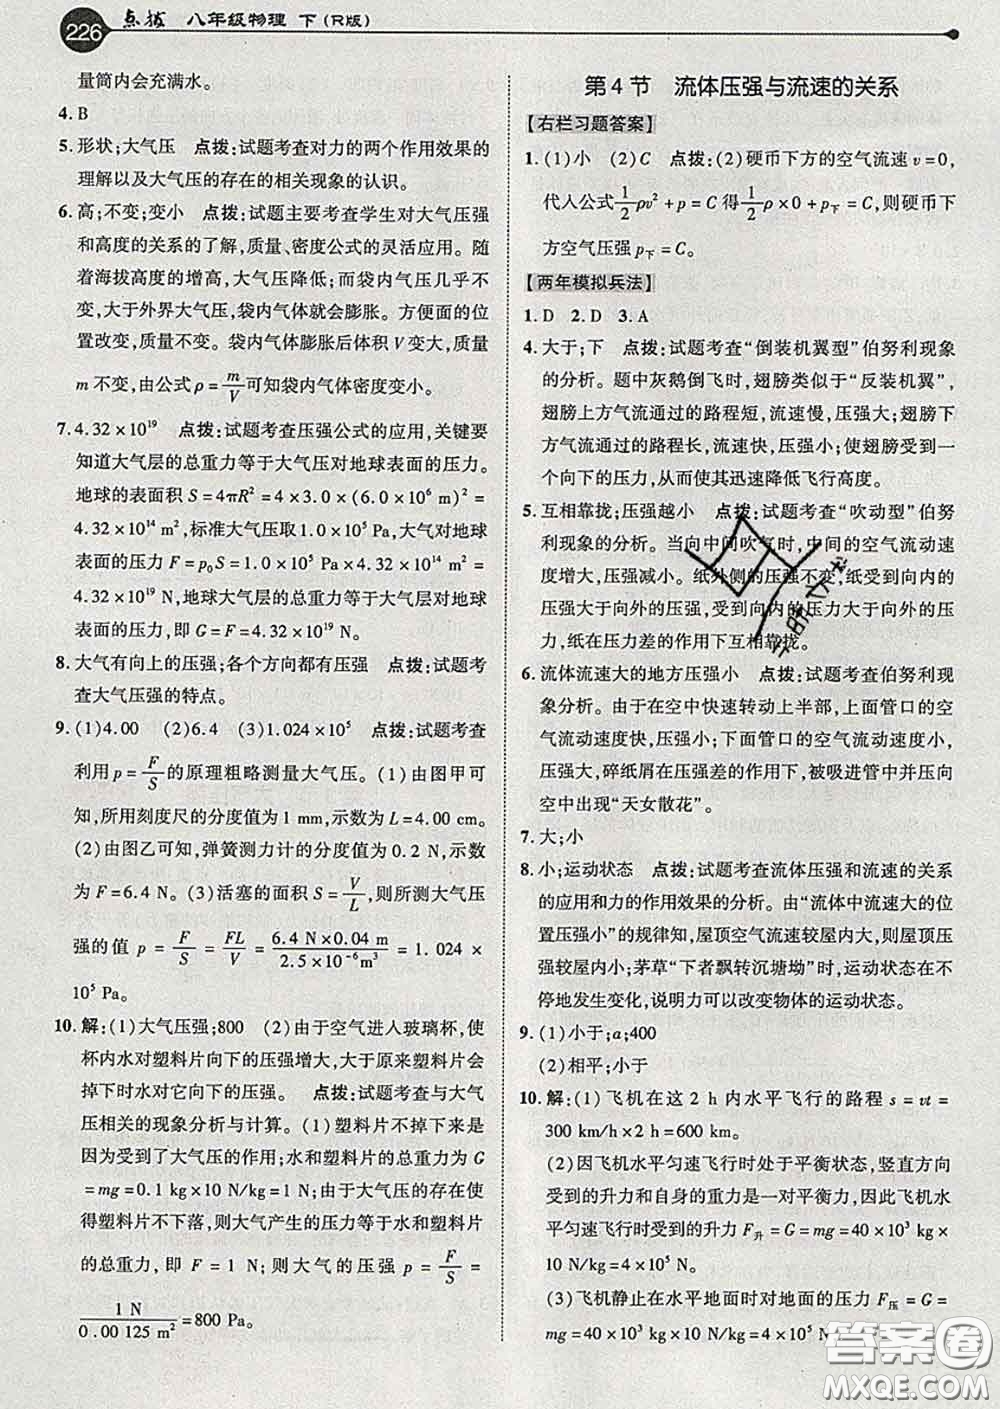 226 点拨 八年级物理 下(R版)
量筒内会充满水。
4. B
5. 形状;大气压 点拨:试题考查对力的两个作用效果的
理解以及大气压的存在的相关现象的认识。
6. 高;不变;变小 点拨:试题主要考查学生对大气压强
和高度的关系的了解,质量、密度公式的灵活应用。随
着海拔高度的增高,大气压降低;而袋内气压几乎不
变,大于外界大气压,袋内气体就会膨胀。方便面的位
置改变,质量不变。袋内气体膨胀后体积 V 变大,质量
m 不变,由公式 ρ = m/V 可知袋内气体密度变小。
7. 4.32×10¹⁹ 点拨:试题考查压强公式的应用,关键要
知道大气层的总重力等于大气压对地球表面的压力。
地球的表面积 S = 4πR² = 4×3.0×(6.0×10⁶ m)² =
4.32×10¹⁴ m²,标准大气压取1.0×10⁵ Pa,大气对地球
表面的压力 F = p₀S = 1.0×10⁵ Pa×4.32×10¹⁴ m² =
4.32×10¹⁹ N,地球大气层的总重力等于大气对地球
表面的压力,即 G = F = 4.32×10¹⁹ N。
8. 大气有向上的压强;各个方向都有压强 点拨:试题考
查大气压强的特点。
9. (1)4.00 (2)6.4 (3)1.024×10⁵ 点拨:试题考查
利用 p = F/S 的原理粗略测量大气压。(1)由图甲可
知,所用刻度尺的分度值为 1 mm,示数为 L = 4.00 cm。
(2)由图乙可知,弹簧测力计的分度值为 0.2 N,示数
为 F = 6.4 N。(3)活塞的面积 S = V/L,则所测大气压
强的值 p = F/S = FL/V = 6.4 N×0.04 m/2.5×10⁻⁶m³ = 1.024 ×
10⁵ Pa。
10. 解:(1)大气压强;800 (2)由于空气进人玻璃杯,使
杯内水对塑料片向下的压强增大,大于原来塑料片会
掉下时水对它向下的压强。 点拨:试题考查与大气
压相关的现象分析与计算。(1)塑料片不掉下来是
因为受到了大气压的作用;水和塑料片的总重力为 G
= mg = 0.1 kg×10 N/kg = 1 N;由于大气压的存在使
得塑料片不下落,则大气产生的压力等于水和塑料片
的总重力,即 F = 1 N;则大气的压强 p = F/S =
1 N/0.00 125 m² = 800 Pa。
第 4 节 流体压强与流速的关系
【右栏习题答案】
1. (1)小 (2)C 点拨:(2)硬币下方的空气流速 v = 0,
代人公式 1/2 ρv² + p = C 得 1/2 ρ×0 + p下 = C,则硬币下
方空气压强 p下 = C。
【两年模拟兵法】
1. D 2. D 3. A
4. 大于;下 点拨:试题考查“倒装机翼型”伯努利现象
的分析。题中灰鹅倒飞时,翅膀类似于“反装机翼”,
翅膀上方气流通过的路程短,流速慢,压强大;翅膀下
方气流通过的路程长,流速快,压强小;使翅膀受到
一个向下的压力,从而使其迅速降低飞行高度。
5. 互相靠拢;压强越小 点拨:试题考查“吹动型”伯努
利现象的分析。当向中间吹气时,中间的空气流动速
度增大,压强减小。纸外侧的压强不变,纸受到向内的
压强大于向外的压强,受到向内的压力大于向外的压
力,纸在压力差的作用下互相靠拢。
6. 流体流速大的地方压强小 点拨:试题考查伯努利现
象分析。由于在空中快速转动上半部,上面管口的空
气流动速度快,压强小;下面管口的空气流动速度小,
压强大,碎纸屑在压强差的作用下,被吸进管中并压向
空中出现“天女散花”。
7. 大;小
8. 小;运动状态 点拨:试题考查流体压强和流速的关系
的应用和力的作用效果的分析。由“流体中流速大的位
置压强小”的规律知,屋顶空气流速较屋内大,则屋顶压
强较屋内小;茅草“下者飘转沉塘坳”时,运动状态在不
停地发生变化,说明力可以改变物体的运动状态。
9. (1)小于;a;400
(2)相平;小于
10. 解:(1)飞机在这 2 h 内水平飞行的路程 s = vt =
300 km/h×2 h = 600 km。
(2)因飞机水平匀速飞行时处于平衡状态,竖直方向
受到的升力和自身的重力是一对平衡力,因此飞机水
平匀速飞行时受到的升力 F升 = G = mg = 40×10³ kg ×
10 N/kg = 4×10⁵ N。
(3)飞机静止在水平地面时对地面的压力 F压 = G =
mg = 40×10³ kg×10 N/kg = 4×10⁵ N,
答案圈
MXQE.COM